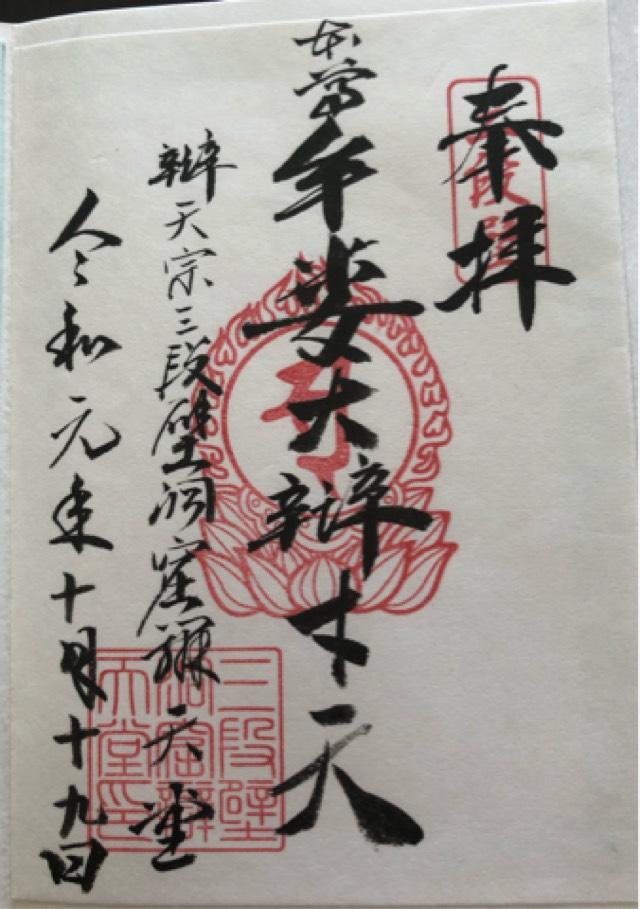 奉拝
三段壁
本尊
牟婁大辯才天
辯天宗三段壁洞窟辯天堂
令和元年十月十九日
三段壁
洞窟辯
天堂印